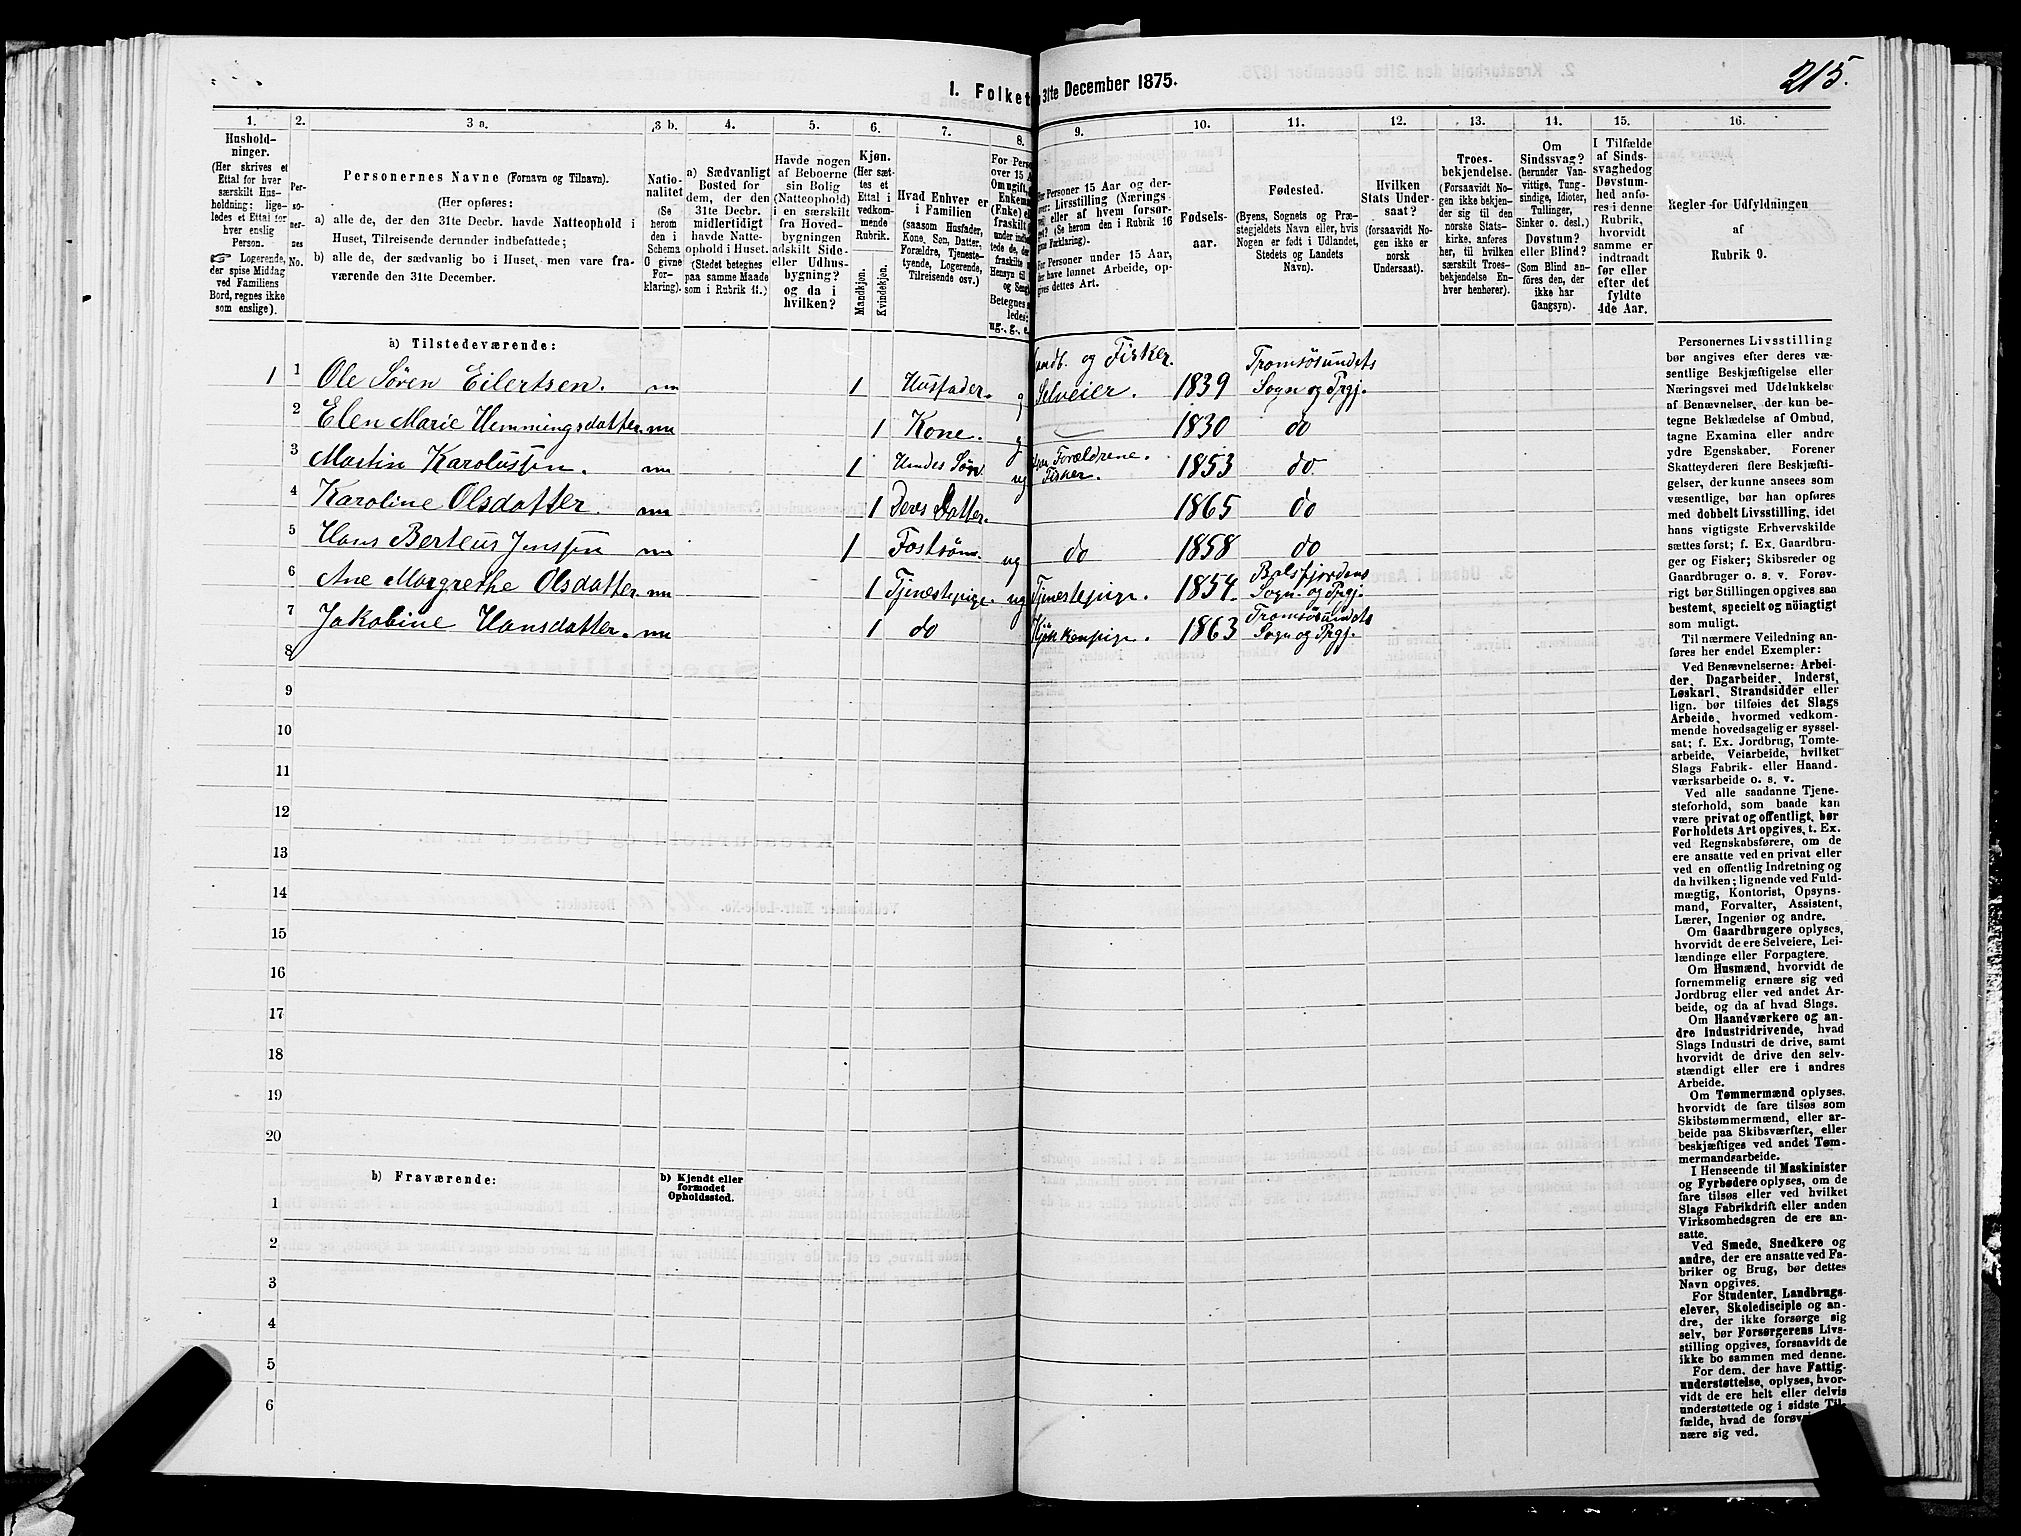 215.
1. Folket
31te December 1875.
1.
2.
3 a.
3 b.
4.
5.
6.
7.
8.
9.
10.
11.
12.
13.
14.
15.
16.
Hushold-
ninger.
(Her skrives et
Ettal for hver
særskilt Hus-
holdning; lige-
ledes et Ettal for
hver enslig
Person.
☞ Logerende,
der spise Middag
ved Familiens
Bord, regnes ikke
som enslige).
Per-
so-
ner-
nes
No.
Personernes Navne (Fornavn og Tilnavn).
(Her opføres:
a) alle de, der den 31te Decbr. havde Natteophold i
Huset, Tilreisende derunder indbefattede;
b) alle de, der sædvanlig bo i Huset, men vare fra-
værende den 31te December.
Natio-
nalitet
(Se
herom
den i
Schema
G givne
For-
klaring).
a) Sædvanligt
Bosted for
dem, der den
31te Decbr.
midlertidigt
havde Natte-
ophold i Huset.
(Stedet betegnes
paa samme Maade
som i Rubrik 11.)
Havde nogen
af Beboerne
sin Bolig
(Natteophold)
i en særskilt
fra Hoved-
bygningen
adskilt Side-
eller Udhus-
bygning?
og da i
hvilken?
Kjøn.
(Her sæt-
tes et
Ettal i
vedkom-
mende
Rubrik.
Mandkjøn.
Kvindekjøn.
Hvad Enhver er
i Familien
(saasom Husfader,
Kone, Søn, Datter,
Forældre, Tjeneste-
tyende, Logerende,
Tilreisende osv.)
For Pers
over 15 A
Om ugift,
Enkem
(Enke) e
fraskilt
Hensyn til
og Seng
Betegnes s
ledes:
ug., g., e.
For Personer 15 Aar og der-
over: Livsstilling (Nærings
vei) eller af hvem forsør-
get? (Se herom den i Rubrik 16
givne Forklaring).
For Personer under 15 Aar,
der have lønnet Arbeide, op-
gives dettes Art.
Fødsels-
aar.
Fødested.
(Byens, Sognets og Præ-
stegjeldets Navn eller, hvis
Nogen er født i Udlandet,
Stedets og Landets
Navn).
Hvilken
Stats Under-
saat?
(forsaavidt No-
gen ikke er
norsk
Undersaat).
Troes-
bekjendelse.
(Forsaavidt No-
gen ikke bekjen-
der sig til den
norske Stats-
kirke, anføres
her, til hvilken
særskilt Troes-
bekjendelse En-
hver henhører).
Om
Sindssvag?
(herunder Van-
vittige, Tung-
sindige, Idioter,
Tullinger,
Sinker o. desl.)
Døvstum?
eller Blind?
(Som Blind an-
føres den, der
ikke har
Gangsyn).
I Tilfælde
af Sinds-
svaghed og
Døvstum-
hed anfø-
res i denne
Rubrik,
hvorvidt
samme er
indtraadt
før eller
efter det
fyldte
4de Aar.
Regler for Udfyldningen
af
Rubrik 9.
a) Tilstedeværende:
1 1 Ole Søren Eilertsen. nn 1 Husfader. g Gaardb. og Fisker. Selveier. 1839 Tromsøsundets Sogn og Prgj.
2 Elen Marie Hemmingsdatter. nn 1 Kone. g 1830 do
3 Martin Karolussen. nn 1 Hendes Søn ug Forældrene. Fisker. 1853 do.
4 Karoline Olsdatter. nn 1 Deres Datter. 1865 do
5 Hans Berteus Jenssen nn 1 Fostsøn. ug do 1858 do
6 Ane Margrethe Olsdatter. nn 1 Tjenestepige. ug Tjenestepige. 1854. Balsfjordens Sogn og Prgj.
7 Jakobine Hansdatter. nn 1 do Kjøkkenpige. 1863 Tromsøsundets Sogn og Prgj.
8
9
10
11
12
13
14
15
16
17
18
19
20
b) Fraværende:
b) Kjendt eller
formodet
Opholdssted.
1
2
3
4
5
6
Personernes Livsstilling
bør angives efter deres væ-
sentlige Beskjæftigelse eller
Næringsvei med Udelukkelse
af Benævnelser, der kun be-
tegne Beklædelse af Ombud,
tagne Examina eller andre
ydre Egenskaber. Forener
Skatteyderen flere Beskjæfti-
gelser, der kunne ansees som
væsentlige, bør han opføres
med dobbelt Livsstilling, idet
hans vigtigste Erhvervskilde
sættes først; f. Ex. Gaardbru-
ger og Fisker; Skibsreder og
Gaardbruger o. s. v. Forøv-
rigt bør Stillingen opgives saa
bestemt, specielt og nøiagtigt
som muligt.
Til nærmere Veiledning an-
føres her endel Exempler:
Ved Benævnelserne: Arbei-
der, Dagarbeider, Inderst,
Løskarl, Strandsidder eller
lign. bør tilføies det Slags
Arbeide, hvormed vedkom-
mende hovedsagelig er syssel-
sat; f. Ex. Jordbrug, Tomte-
arbeide, Veiarbeide, hvilket
Slags Fabrik- eller Haand-
værksarbeide o. s. v.
Ved alle saadanne Tjene-
steforhold, som baade kan
være privat og offentligt, bør
Forholdets Art opgives, t. Ex.
ved Regnskabsførere, om de
ere ansatte ved en privat eller
ved en offentlig Indretning og
da hvilken; lignende ved Fuld-
mægtig, Kontorist, Opsyns-
mand, Forvalter, Assistent,
Lærer, Ingeniør og andre.
Om Gaardbrugere oplyses,
hvorvidt de ere Selveiere, Lei-
lændinge eller Forpagtere.
Om Husmænd, hvorvidt de
fornemmelig ernære sig ved
Jordbrug eller ved andet Ar-
beide, og da af hvad Slags.
Om Haandværkere og an-
dre Industridrivende, hvad
Slags Industri de drive, samt
hvorvidt de drive den selv-
stændigt eller ere i andres
Arbeide.
Om Tømmermænd oplyses,
hvorvidt de fare tilsøs som
Skibstømmermænd, eller ar-
beide paa Skibsværfter, eller
beskjæftiges ved andet Tøm-
mermandsarbeide.
I Henseende til Maskinister
og Fyrbødere oplyses, om de
fare tilsøs eller ved hvilket
Slags Fabrikdrift eller anden
Virksomhedsgren de ere an-
satte.
Ved Smede, Snedkere og
andre, der ere ansatte ved Fa-
briker og Brug, bør dettes
Navn opgives.
For Studenter, Landbrugs-
elever, Skoledisciple og an-
dre, der ikke forsørge sig
selv, bør Forsørgerens Livs-
stilling opgives, forsaavidt de
ikke bo sammen med denne.
For dem, der have Fattig-
understøttelse, oplyses, hvor-
vidt de ere helt eller delvis
understøttede og i sidste Til-
fælde, hvad de forøvrigt
nære sig ved.